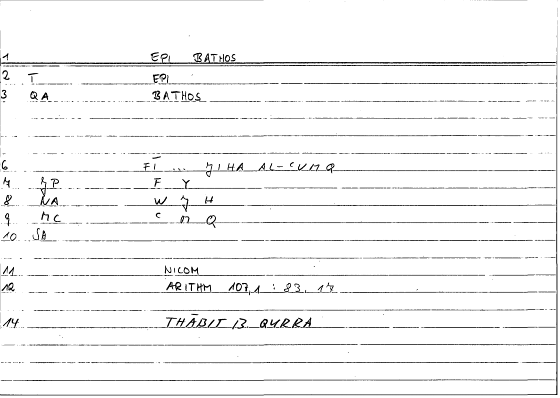 1 EPI BATHOS
2 T EPI
3 QA BATHOS
6 FĪ ... ʒIHA AL-ᶜUMQ
7 ʒP F Y
8 NA W ʒ H
9 MC ᶜ M Q
10 SA
11 NICOM
12 ARITHM 107,1 : 83.17
14 THĀBIT B QURRA